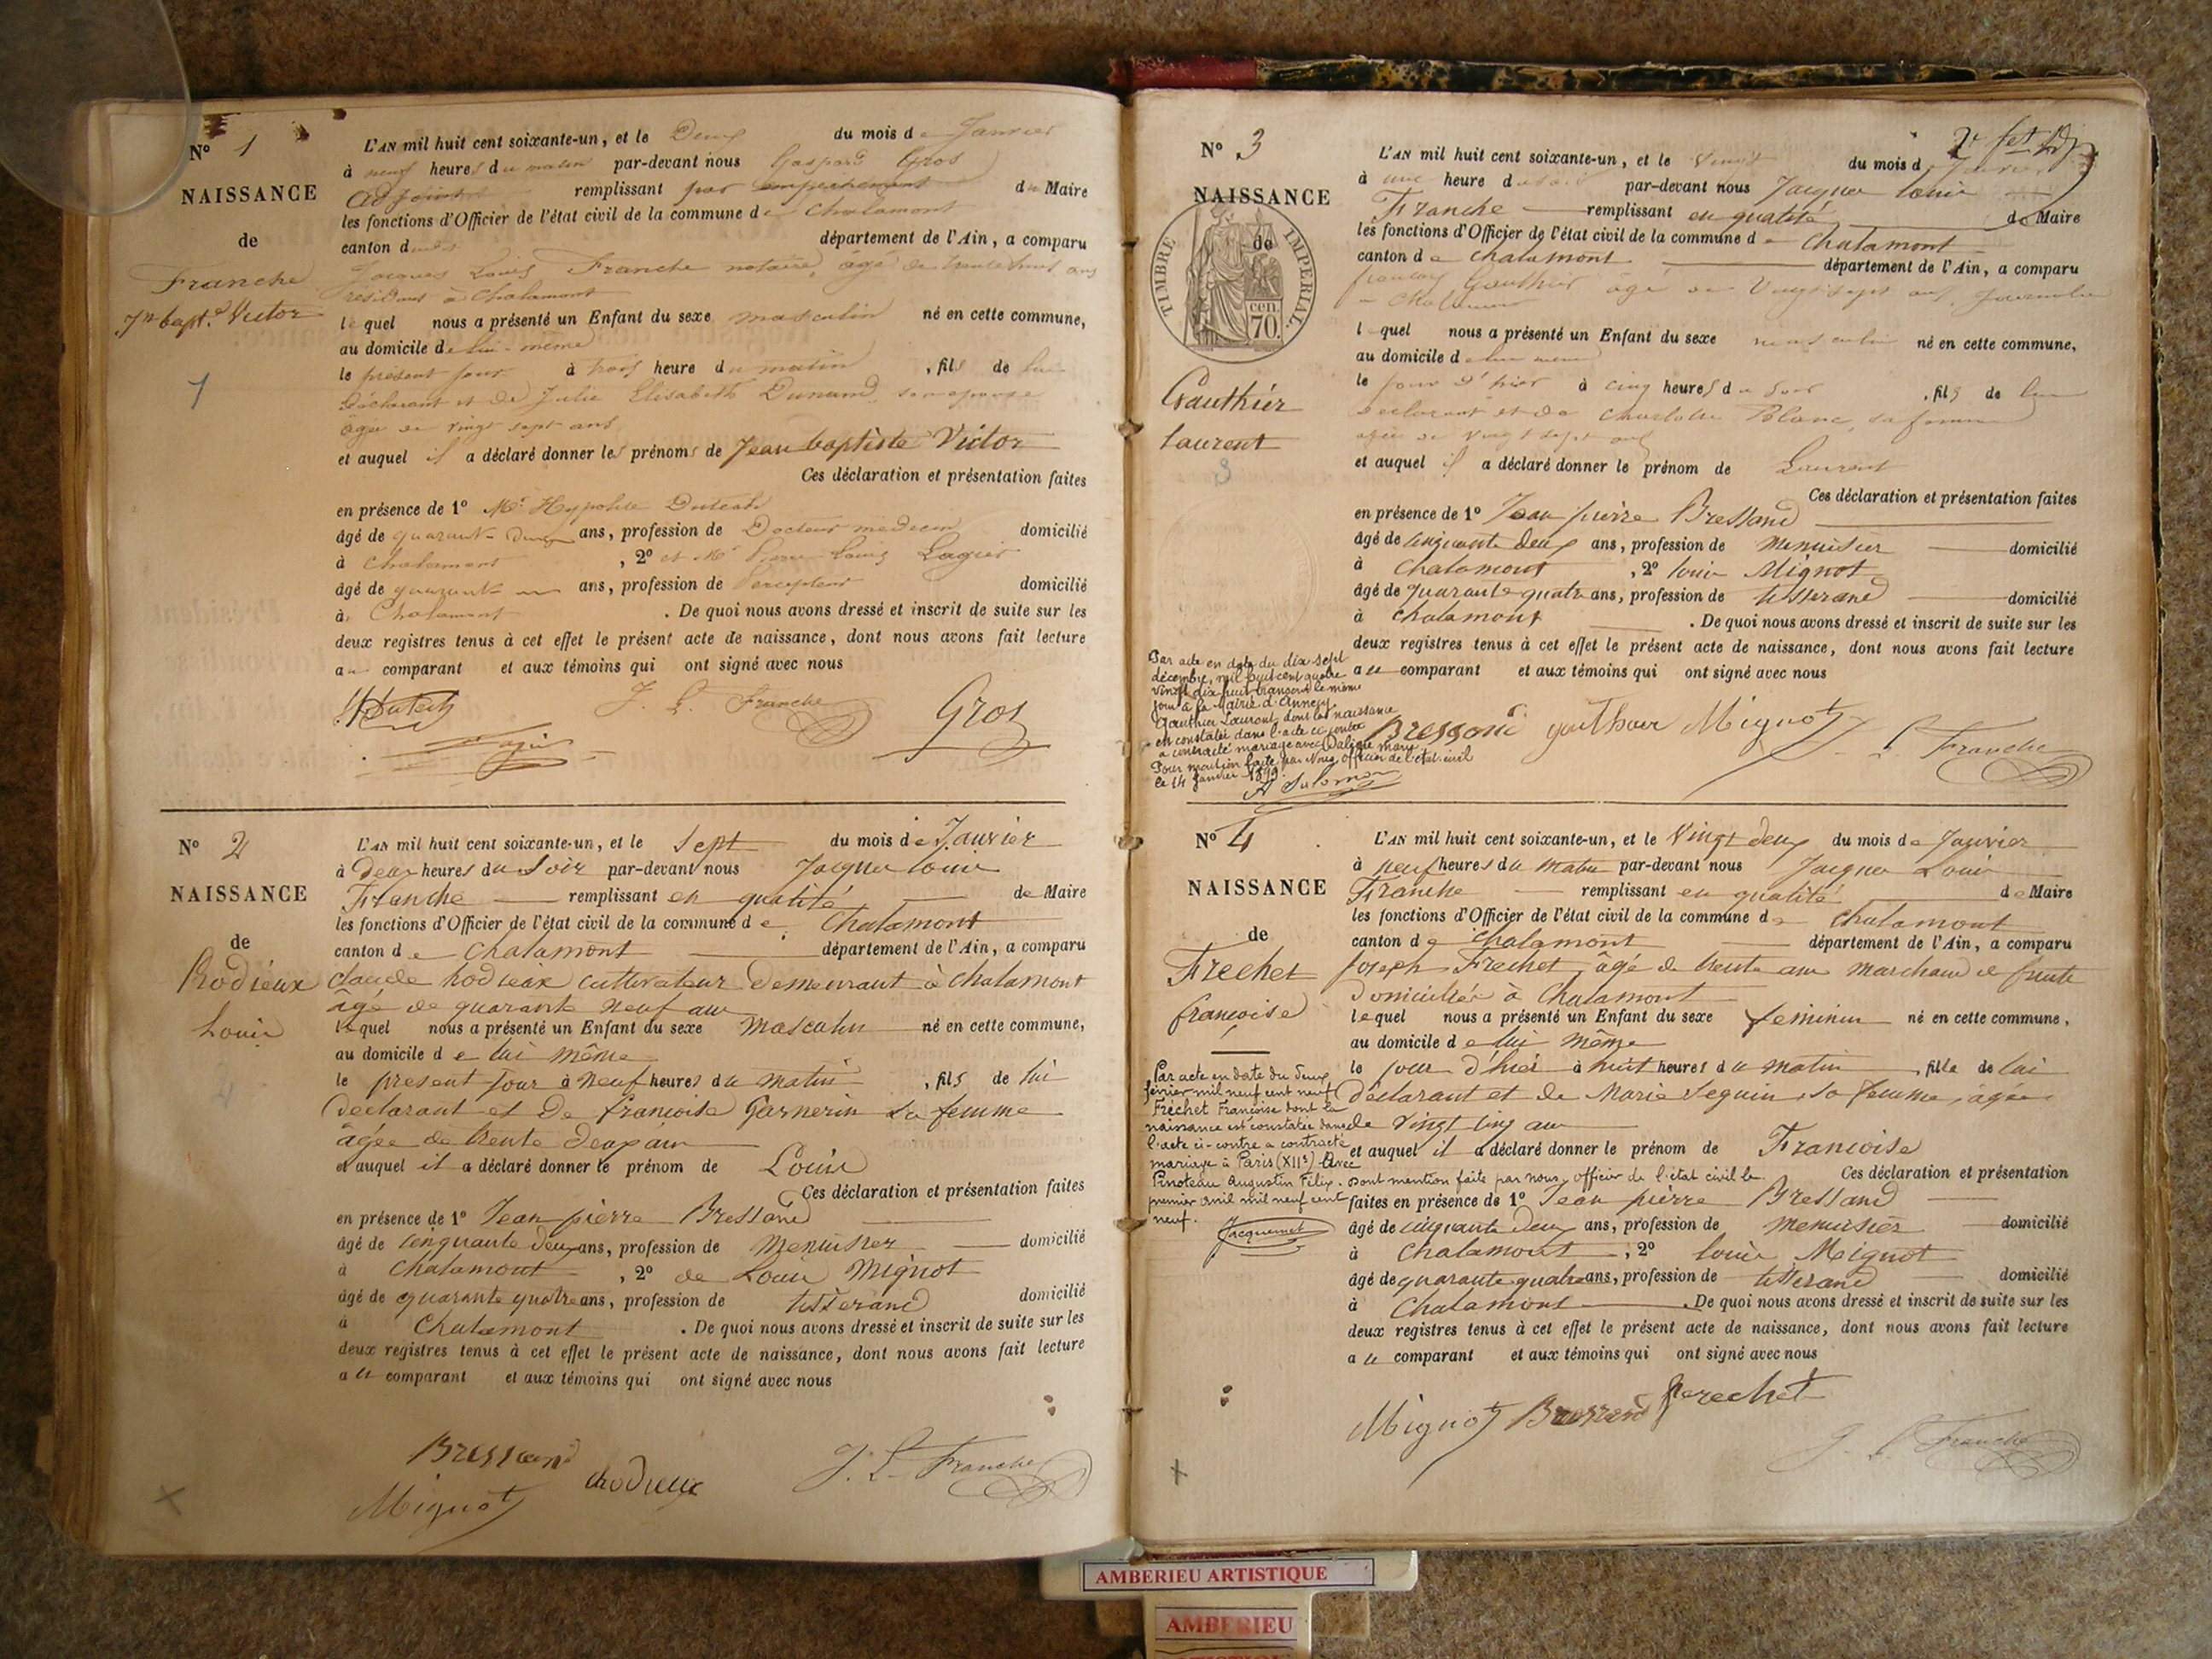 N° 1
NAISSANCE
de
Franche
Jn bapt.e Victor
1
L'AN mil huit cent soixante-un, et le Deux du mois de Janvier
à neuf heures du matin par-devant nous Gaspard Gros
adjoint remplissant par empechement du Maire
les fonctions d'Officier de l'état civil de la commune de Chalamont
canton dudit département de l'Ain, a comparu
Jacques Louis Franche notaire, agé de trente huit ans
résidant à Chalamont
lequel nous a présenté un Enfant du sexe masculin né en cette commune,
au domicile de lui-meme
le présent jour à trois heure du matin, fils de lui
déclarant et de Julie Elisabeth Dunand son epouse
agée de vingt sept ans
et auquel il a déclaré donner les prénoms de Jean baptiste Victor
Ces déclaration et présentation faites
en présence de 1° Mr Hypolite
âgé de quarante deux ans, profession de Docteur medecin domicilié
à Chalamont, 2° et Mr Pierre Louis Lagier
âgé de quarante un ans, profession de Percepteur domicilié
à Chalamont. De quoi nous avons dressé et inscrit de suite sur les
deux registres tenus à cet effet le présent acte de naissance, dont nous avons fait lecture
au comparant et aux témoins qui ont signé avec nous
J. L. Franche
Gros
N° 2
NAISSANCE
de
Rodieux
Louis
2
L'AN mil huit cent soixante-un, et le Sept du mois de Janvier
à Deux heures du Soir par-devant nous Jacques Louis
Franche remplissant en qualité de Maire
les fonctions d'Officier de l'état civil de la commune de Chalamont
canton de Chalamont département de l'Ain, a comparu
claude Rodieux cultivateur demeurant à Chalamont
âgé de quarante neuf ans
lequel nous a présenté un Enfant du sexe Masculin né en cette commune,
au domicile de lui même
le present jour à Neuf heures du matin, fils de lui
declarant et De francoise Garnerin sa femme
âgée de trente deux ans
et auquel il a déclaré donner le prénom de Louis
Ces déclaration et présentation faites
en présence de 1° Jean pierre Bressand
âgé de cinquante deux ans, profession de Menuisier domicilié
à Chalamont, 2° de Louis Mignot
âgé de quarante quatre ans, profession de tisserand domicilié
à Chalamont. De quoi nous avons dressé et inscrit de suite sur les
deux registres tenus à cet effet le présent acte de naissance, dont nous avons fait lecture
a le comparant et aux témoins qui ont signé avec nous
Bressand
Mignot
Rodieux
J. L. Franche
N° 3
NAISSANCE
de
TIMBRE IMPERIAL
cen.
70.
Gauthier
Laurent
3
L'AN mil huit cent soixante-un, et le Vingt du mois de Janvier
à une heure du soir par-devant nous Jacques Louis
Franche remplissant en qualité de Maire
les fonctions d'Officier de l'état civil de la commune de Chalamont
canton de Chalamont département de l'Ain, a comparu
françois Gauthier agé de Vingt sept ans journalier
à Chalamont
lequel nous a présenté un Enfant du sexe masculin né en cette commune,
au domicile de lui meme
le jour d'hier à cinq heures du Soir, fils de lui
declarant et de Charlotte Blanc, sa femme
agée de vingt sept ans
et auquel il a déclaré donner le prénom de Laurent
Ces déclaration et présentation faites
en présence de 1° Jean pierre Bressand
âgé de cinquante deux ans, profession de Menuisier domicilié
à Chalamont, 2° Louis Mignot
âgé de quarante quatre ans, profession de tisserand domicilié
à Chalamont. De quoi nous avons dressé et inscrit de suite sur les
deux registres tenus à cet effet le présent acte de naissance, dont nous avons fait lecture
a le comparant et aux témoins qui ont signé avec nous
Par acte en date du dix sept
décembre, mil huit cent quatre
vingt dix huit, transcrit le même
jour à la Mairie d'Annecy
Gauthier Laurent, dont la naissance
est constatée dans l'acte ci-contre
a contracté mariage avec Dalique Marie
Pour mention faite par Nous, officier de l'état-civil
le 14 janvier 1899.
A Salomon
Bressand gauthier Mignot
J. L. Franche
N° 4
NAISSANCE
de
Frechet
françoise
L'AN mil huit cent soixante-un, et le Vingt deux du mois de Janvier
à Neuf heures du Matin par-devant nous Jacques Louis
Franche remplissant en qualité de Maire
les fonctions d'Officier de l'état civil de la commune de Chalamont
canton de Chalamont département de l'Ain, a comparu
Joseph Frechet, âgé de trente ans marchand de fruits
domicilié à Chalamont
lequel nous a présenté un Enfant du sexe feminin né en cette commune,
au domicile de lui même
le jour d'hier à huit heures du matin, fille de lui
déclarant et de Marie Seguin, sa femme, âgée
de vingt cinq ans
et auquel il a déclaré donner le prénom de Francoise
Ces déclaration et présentation
faites en présence de 1° Jean pierre Bressand
âgé de cinquante deux ans, profession de Menuisier domicilié
à Chalamont, 2° Louis Mignot
âgé de quarante quatre ans, profession de tisserand domicilié
à Chalamont. De quoi nous avons dressé et inscrit de suite sur les
deux registres tenus à cet effet le présent acte de naissance, dont nous avons fait lecture
a le comparant et aux témoins qui ont signé avec nous
Par acte en date du deux
février mil neuf cent neuf
Fréchet Françoise dont la
naissance est constatée dans
l'acte ci-contre a contracté
mariage à Paris (XIIe) avec
Pinoteau Augustin Félix. Dont mention faite par nous, officier de l'état civil le
premier avril mil neuf cent
neuf.
Jacquemet
Mignot Bressand frechet
J. L. Franche
AMBERIEU ARTISTIQUE
AMBERIEU